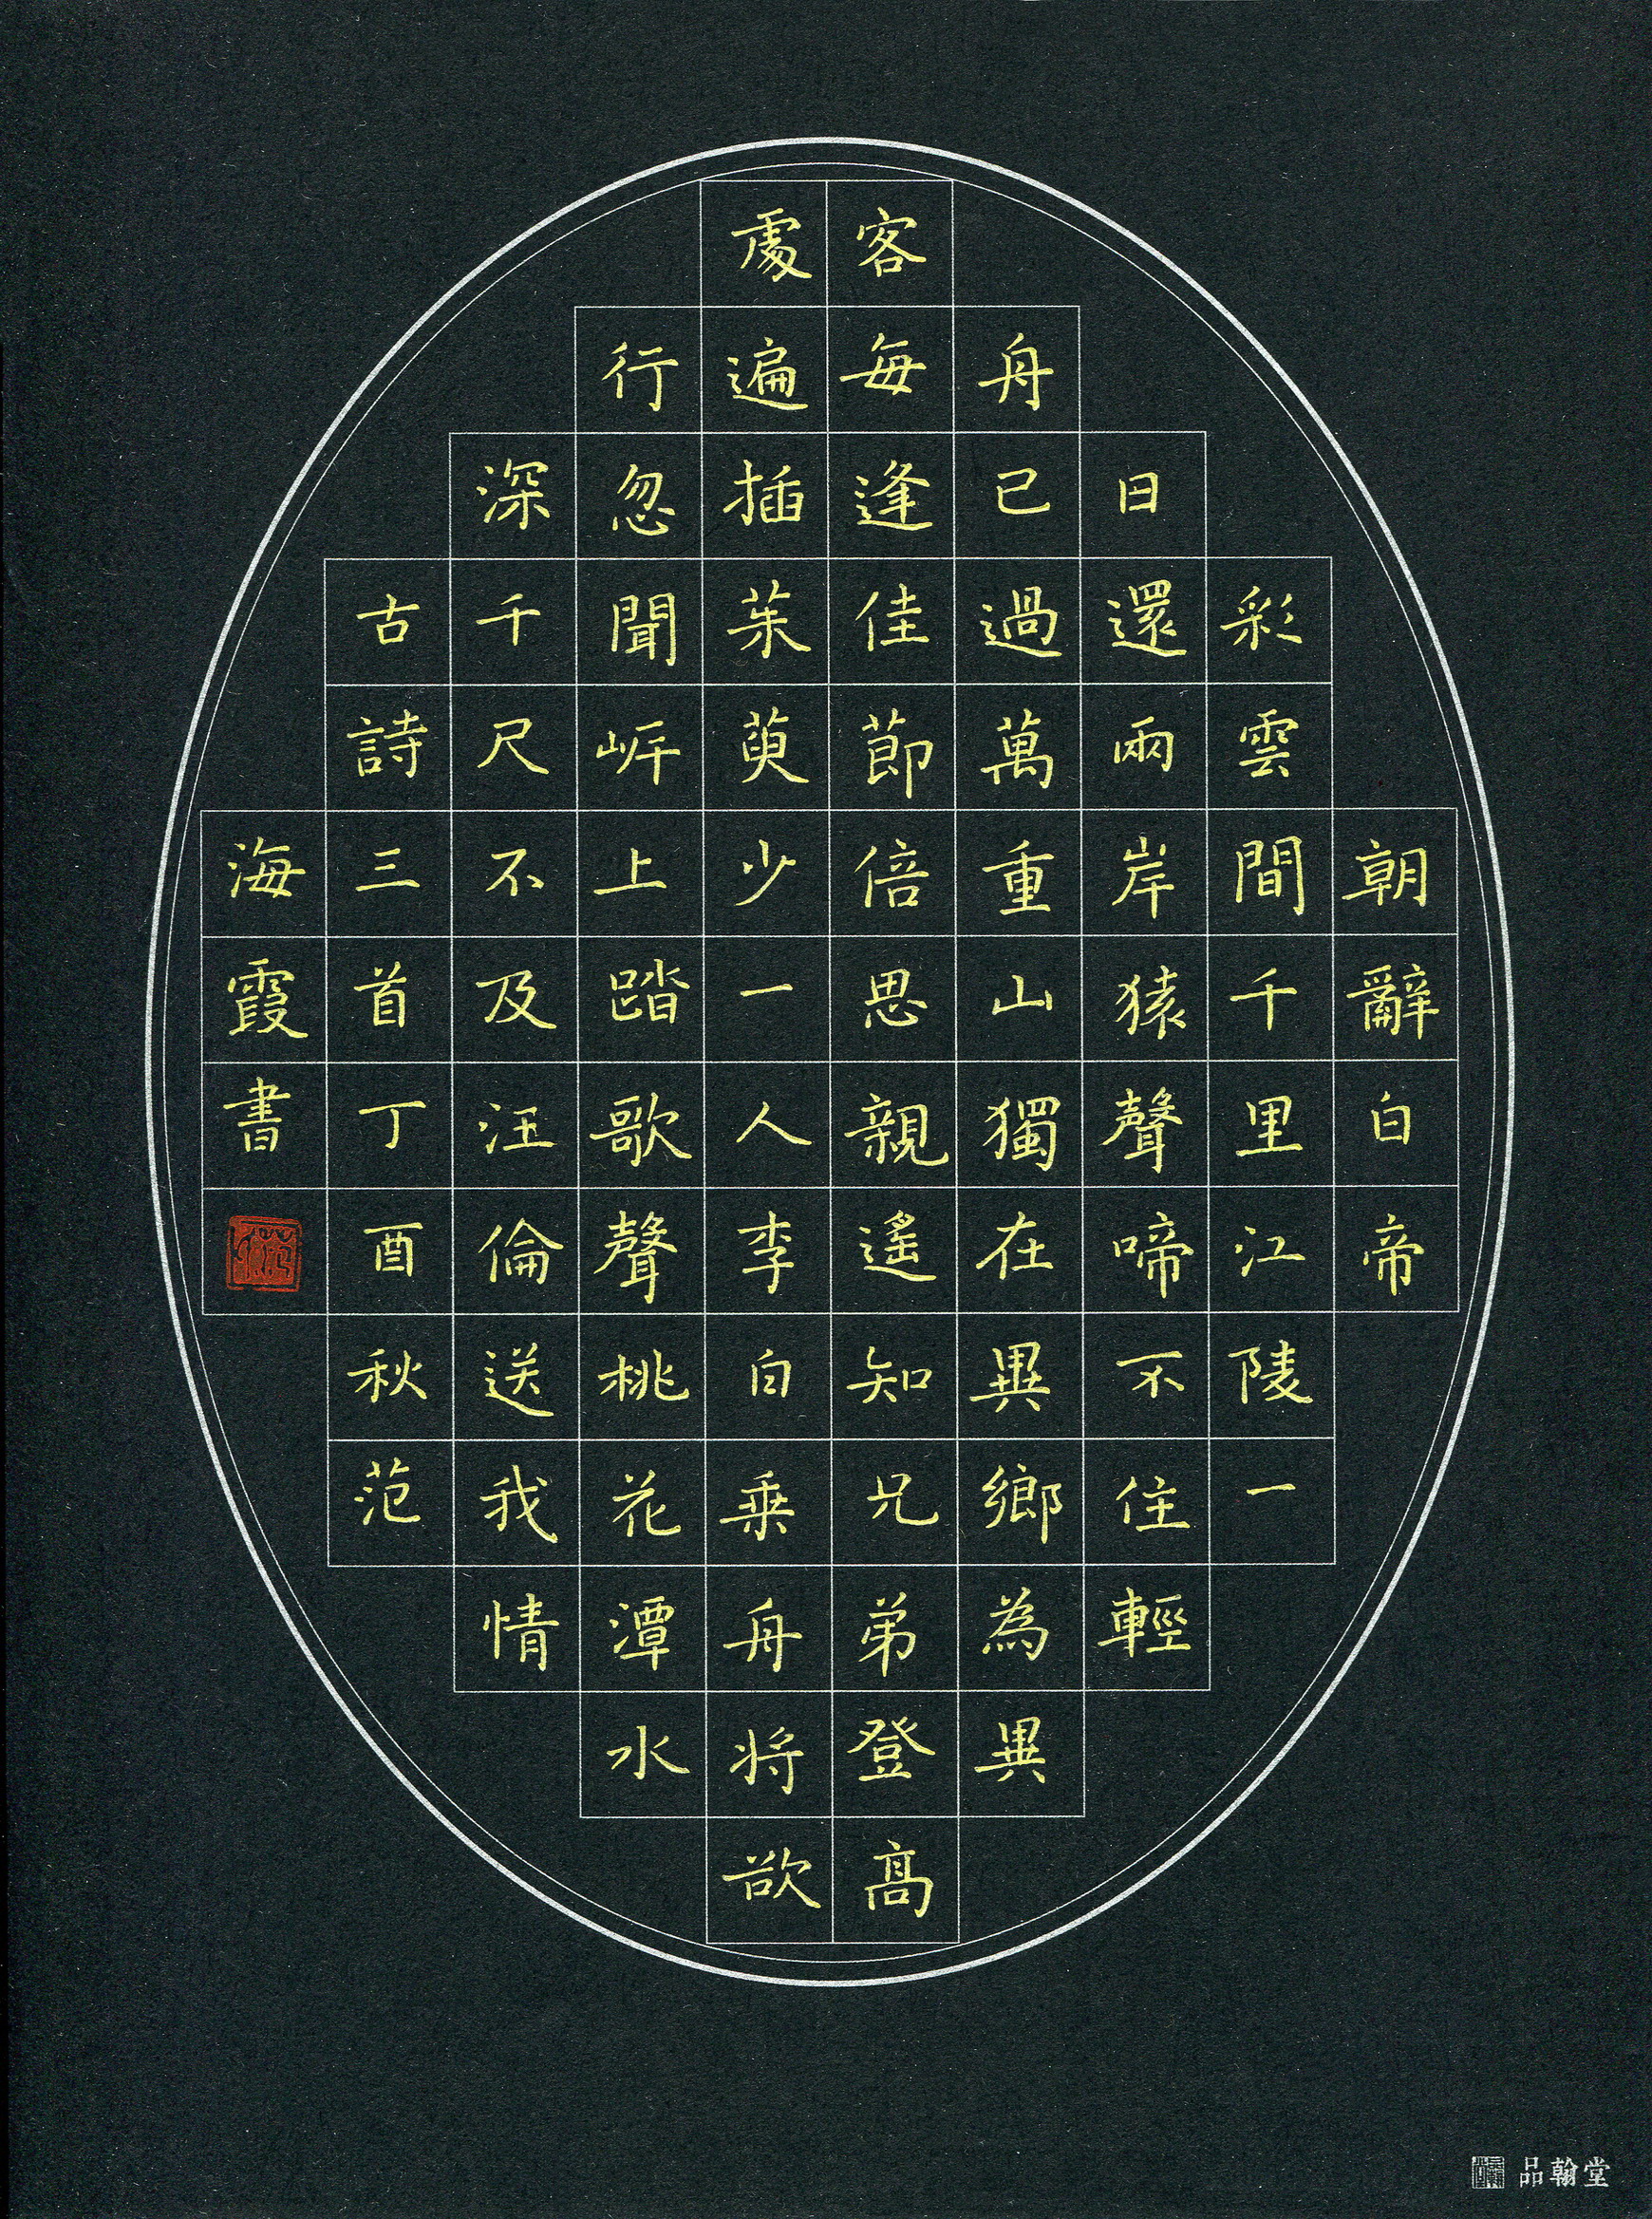 朝辭白帝
彩雲間千里江陵一
日還兩岸猿聲啼不住輕
舟已過萬重山獨在異鄉為異
客每逢佳節倍思親遙知兄弟登高
處遍插茱萸少一人李白乘舟将欲
行忽聞岸上踏歌聲桃花潭水
深千尺不及汪倫送我情
古詩三首丁酉秋范
海霞書
品翰堂